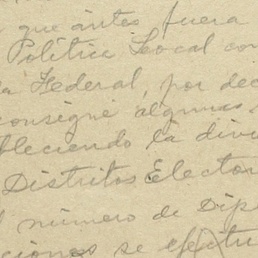 que antes fuera
Política Local con
a Federal, por dec
consigné algunas
bleciendo la divi
Distritos Elector
número de Dip
ciones se efectu